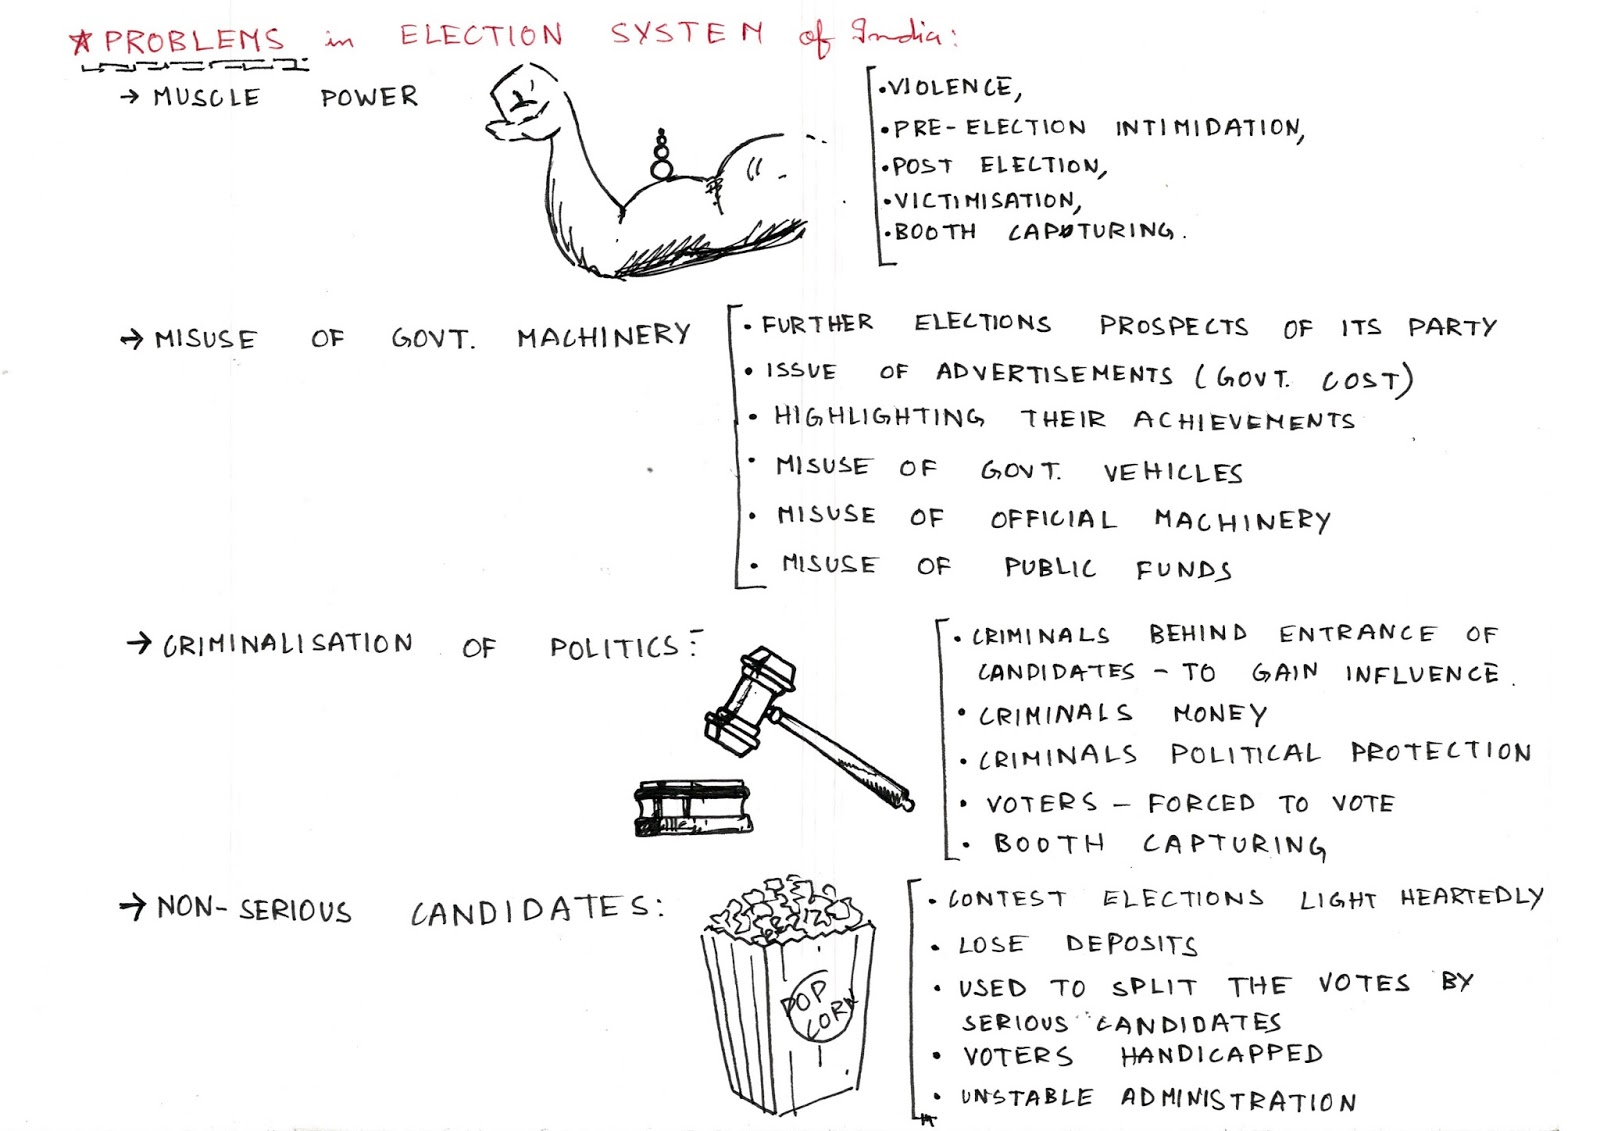 ★ PROBLEMS in ELECTION SYSTEM of India:
→ MUSCLE POWER
•VIOLENCE,
•PRE-ELECTION INTIMIDATION,
•POST ELECTION,
•VICTIMISATION,
•BOOTH CAPTURING.
→ MISUSE OF GOVT. MACHINERY
• FURTHER ELECTIONS PROSPECTS OF ITS PARTY
• ISSUE OF ADVERTISEMENTS (GOVT. COST)
• HIGHLIGHTING THEIR ACHIEVEMENTS
• MISUSE OF GOVT. VEHICLES
• MISUSE OF OFFICIAL MACHINERY
• MISUSE OF PUBLIC FUNDS
→ CRIMINALISATION OF POLITICS:
• CRIMINALS BEHIND ENTRANCE OF
CANDIDATES - TO GAIN INFLUENCE.
• CRIMINALS MONEY
• CRIMINALS POLITICAL PROTECTION
• VOTERS - FORCED TO VOTE
• BOOTH CAPTURING
→ NON-SERIOUS CANDIDATES:
POP
CORN
• CONTEST ELECTIONS LIGHT HEARTEDLY
• LOSE DEPOSITS
• USED TO SPLIT THE VOTES BY
SERIOUS CANDIDATES
• VOTERS HANDICAPPED
• UNSTABLE ADMINISTRATION